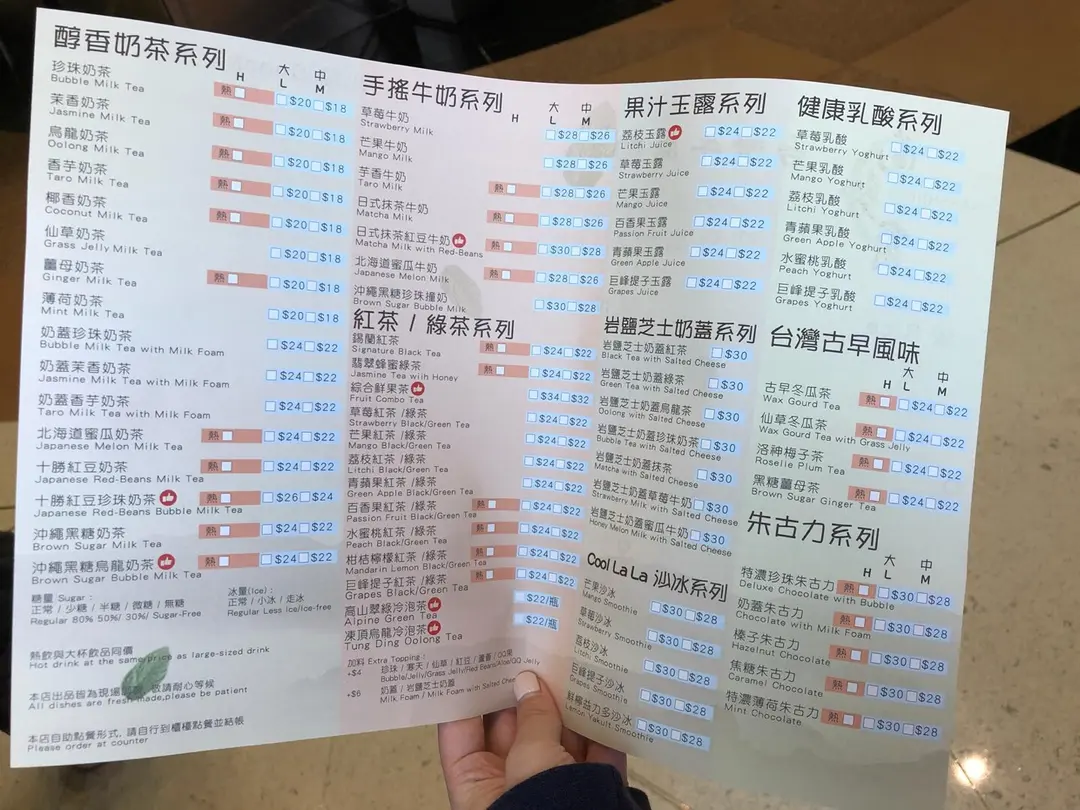 醇香奶茶系列
H 大L 中M
珍珠奶茶 熱 $20 $18
Bubble Milk Tea
茉香奶茶 熱 $20 $18
Jasmine Milk Tea
烏龍奶茶 熱 $20 $18
Oolong Milk Tea
香芋奶茶 熱 $20 $18
Taro Milk Tea
椰香奶茶 熱 $20 $18
Coconut Milk Tea
仙草奶茶 $20 $18
Grass Jelly Milk Tea
薑母奶茶 熱 $20 $18
Ginger Milk Tea
薄荷奶茶 $20 $18
Mint Milk Tea
奶蓋珍珠奶茶 $24 $22
Bubble Milk Tea with Milk Foam
奶蓋茉香奶茶 $24 $22
Jasmine Milk Tea with Milk Foam
奶蓋香芋奶茶 $24 $22
Taro Milk Tea with Milk Foam
北海道蜜瓜奶茶 熱 $24 $22
Japanese Melon Milk Tea
十勝紅豆奶茶 熱 $24 $22
Japanese Red-Beans Milk Tea
十勝紅豆珍珠奶茶 熱 $26 $24
Japanese Red-Beans Bubble Milk Tea
沖繩黑糖奶茶 熱 $24 $22
Brown Sugar Milk Tea
沖繩黑糖烏龍奶茶 熱 $24 $22
Brown Sugar Bubble Milk Tea
糖量 Sugar :
正常 / 少糖 / 半糖 / 微糖 / 無糖
Regular 80% 50%/ 30%/ Sugar-Free
冰量(Ice) :
正常 / 小冰 / 走冰
Regular Less ice/Ice-free
熱飲與大杯飲品同價
Hot drink at the same price as large-sized drink
本店出品皆為現場 敬請耐心等候
All dishes are fresh made,please be patient
本店自助點餐形式, 請自行到櫃檯點餐並結帳
Please order at counter
手搖牛奶系列
H 大L 中M
草莓牛奶 $28 $26
Strawberry Milk
芒果牛奶 $28 $26
Mango Milk
芋香牛奶 熱 $28 $26
Taro Milk
日式抹茶牛奶 熱 $28 $26
Matcha Milk
日式抹茶紅豆牛奶 熱 $30 $28
Matcha Milk with Red-Beans
北海道蜜瓜牛奶 熱 $28 $26
Japanese Melon Milk
沖繩黑糖珍珠撞奶 $30 $28
Brown Sugar Bubble Milk
紅茶 / 綠茶系列
錫蘭紅茶 熱 $24 $22
Signature Black Tea
翡翠蜂蜜綠茶 熱 $24 $22
Jasmine Tea with Honey
綜合鮮果茶 $34 $32
Fruit Combo Tea
草莓紅茶 /綠茶 $24 $22
Strawberry Black/Green Tea
芒果紅茶 /綠茶 $24 $22
Mango Black/Green Tea
荔枝紅茶 /綠茶 $24 $22
Litchi Black/Green Tea
青蘋果紅茶 /綠茶 $24 $22
Green Apple Black/Green Tea
百香果紅茶 /綠茶 熱 $24 $22
Passion Fruit Black/Green Tea
水蜜桃紅茶 /綠茶 熱 $24 $22
Peach Black/Green Tea
柑桔檸檬紅茶 /綠茶 熱 $24 $22
Mandarin Lemon Black/Green Tea
巨峰提子紅茶 /綠茶 熱 $24 $22
Grapes Black/Green Tea
高山翠綠冷泡茶 $22/瓶
Alpine Green Tea
凍頂烏龍冷泡茶 $22/瓶
Tung Ding Oolong Tea
加料 Extra Topping :
+$4 珍珠 / 寒天 / 仙草 / 紅豆 / 蘆薈 / QQ果
Bubble/Jelly/Grass Jelly/Red Beans/Aloe/QQ Jelly
+$6 奶蓋 / 岩鹽芝士奶蓋
Milk Foam / Milk Foam with Salted Cheese
果汁玉露系列
荔枝玉露 $24 $22
Litchi Juice
草莓玉露 $24 $22
Strawberry Juice
芒果玉露 $24 $22
Mango Juice
百香果玉露 $24 $22
Passion Fruit Juice
青蘋果玉露 $24 $22
Green Apple Juice
巨峰提子玉露 $24 $22
Grapes Juice
岩鹽芝士奶蓋系列
岩鹽芝士奶蓋紅茶 $30
Black Tea with Salted Cheese
岩鹽芝士奶蓋綠茶 $30
Green Tea with Salted Cheese
岩鹽芝士奶蓋烏龍茶 $30
Oolong with Salted Cheese
岩鹽芝士奶蓋珍珠奶茶 $30
Bubble Tea with Salted Cheese
岩鹽芝士奶蓋抹茶 $30
Matcha with Salted Cheese
岩鹽芝士奶蓋草莓牛奶 $30
Strawberry Milk with Salted Cheese
岩鹽芝士奶蓋蜜瓜牛奶 $30
Honey Melon Milk with Salted Cheese
Cool La La 沙冰系列
芒果沙冰 $30 $28
Mango Smoothie
草莓沙冰 $30 $28
Strawberry Smoothie
荔枝沙冰 $30 $28
Litchi Smoothie
巨峰提子沙冰 $30 $28
Grapes Smoothie
鮮檸益力多沙冰 $30 $28
Lemon Yakult Smoothie
健康乳酸系列
草莓乳酸 $24 $22
Strawberry Yoghurt
芒果乳酸 $24 $22
Mango Yoghurt
荔枝乳酸 $24 $22
Litchi Yoghurt
青蘋果乳酸 $24 $22
Green Apple Yoghurt
水蜜桃乳酸 $24 $22
Peach Yoghurt
巨峰提子乳酸 $24 $22
Grapes Yoghurt
台灣古早風味
H 大L 中M
古早冬瓜茶 熱 $24 $22
Wax Gourd Tea
仙草冬瓜茶 熱 $24 $22
Wax Gourd Tea with Grass Jelly
洛神梅子茶 熱 $24 $22
Roselle Plum Tea
黑糖薑母茶 熱 $24 $22
Brown Sugar Ginger Tea
朱古力系列
H 大L 中M
特濃珍珠朱古力 熱 $30 $28
Deluxe Chocolate with Bubble
奶蓋朱古力 熱 $30 $28
Chocolate with Milk Foam
榛子朱古力 熱 $30 $28
Hazelnut Chocolate
焦糖朱古力 熱 $30 $28
Caramel Chocolate
特濃薄荷朱古力 熱 $30 $28
Mint Chocolate